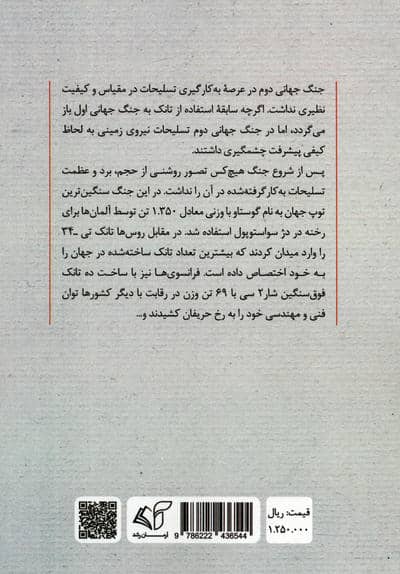 جنگ جهانی دوم در عرصهٔ به‌کارگیری تسلیحات در مقیاس و کیفیت
نظیری نداشت. اگرچه سابقهٔ استفاده از تانک به جنگ جهانی اول باز
می‌گردد، اما در جنگ جهانی دوم تسلیحات نیروی زمینی به لحاظ
کیفی پیشرفت چشمگیری داشتند.
پس از شروع جنگ هیچ‌کس تصور روشنی از حجم، برد و عظمت
تسلیحات به‌کار گرفته‌شده در آن را نداشت. در این جنگ سنگین‌ترین
توپ جهان به نام گوستاو با وزنی معادل ۱.۳۵۰ تن توسط آلمان‌ها برای
رخنه در دژ سواستوپول استفاده شد. در مقابل روس‌ها تانک تی -۳۴
را وارد میدان کردند که بیشترین تعداد تانک ساخته‌شده در جهان را
به خود اختصاص داده است. فرانسوی‌ها نیز با ساخت ده تانک
فوق‌سنگین شار۲ سی با ۶۹ تن وزن در رقابت با دیگر کشورها توان
فنی و مهندسی خود را به رخ حریفان کشیدند و...
قیمت: ریال
۱.۲۵۰.۰۰۰
9 786222 436544
آرمان رشد